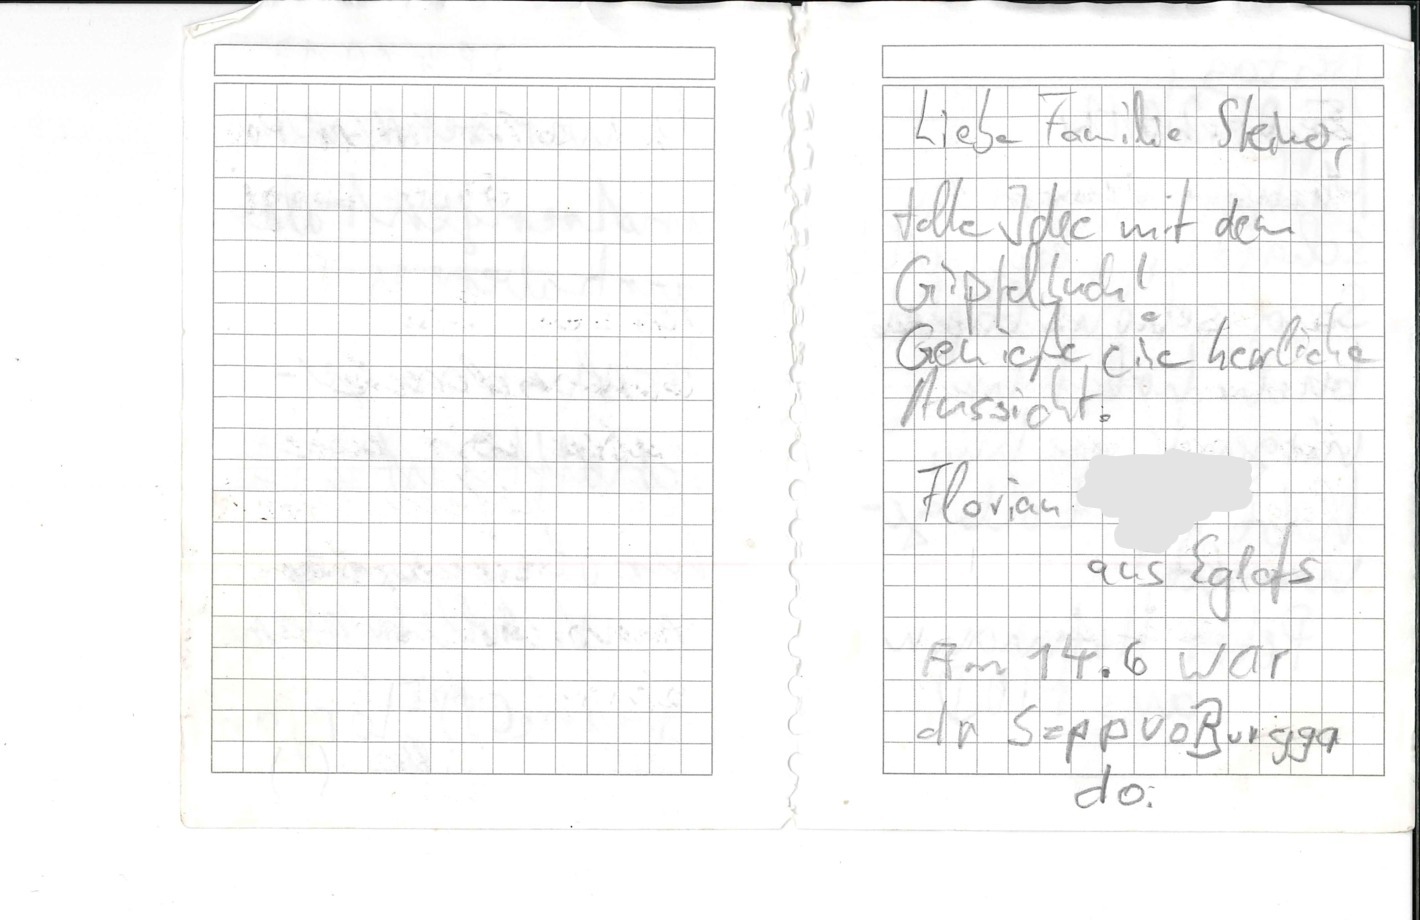 Liebe Familie Steiner,
tolle Idee mit dem
Gipfelbuch!
Genieße die herrliche
Aussicht.
Florian
aus Eglofs
Am 14.6 war
dr Sepp vo Burgga
do.